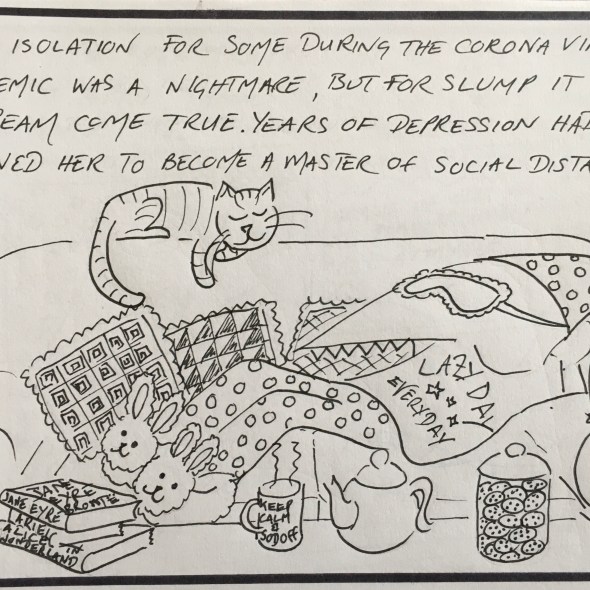 ISOLATION FOR SOME DURING THE CORONA VI
EMIC WAS A NIGHTMARE, BUT FOR SLUMP IT
EAM COME TRUE. YEARS OF DEPRESSION HAD
NED HER TO BECOME A MASTER OF SOCIAL DISTA
LAZY DAY
EVERYDAY
KEEP
KALM
&
SOD OFF
EYRE
BRONTE
JANE EYRE
ARIEL
ALICE IN
WONDERLAND